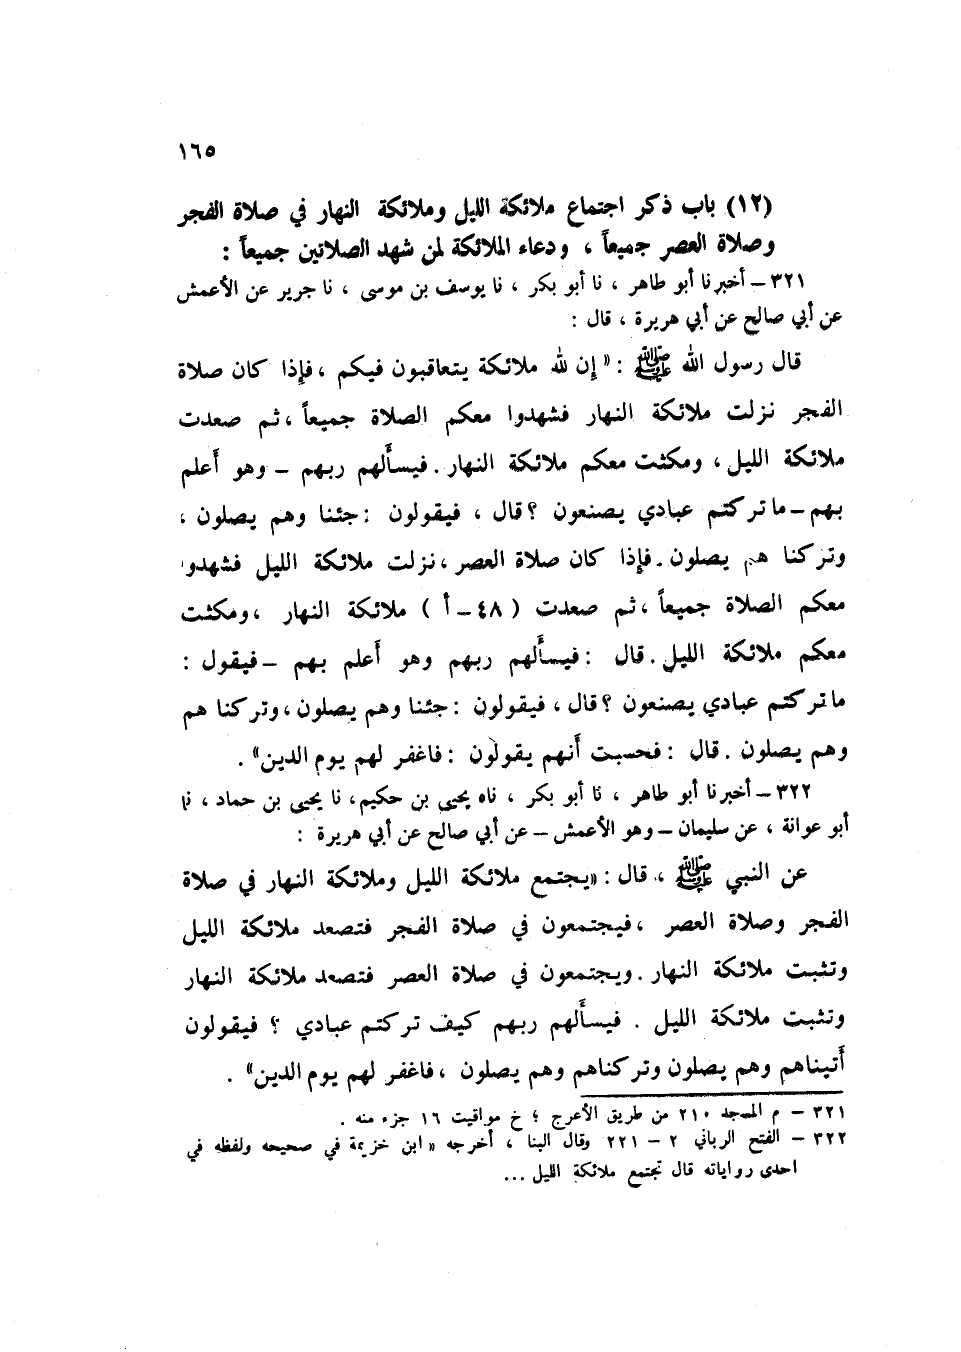 ١٦٥
(١٢) باب ذكر اجتماع ملائكة الليل وملائكة النهار في صلاة الفجر
وصلاة العصر جميعاً ، ودعاء الملائكة لمن شهد الصلاتين جميعاً :
٣٢١ – أخبرنا أبو طاهر ، نا أبو بكر ، نا يوسف بن موسى ، نا جرير عن الأعمش
عن أبي صالح عن أبي هريرة ، قال :
قال رسول الله ﷺ : « إن لله ملائكة يتعاقبون فيكم ، فإذا كان صلاة
الفجر نزلت ملائكة النهار فشهدوا معكم الصلاة جميعاً ، ثم صعدت
ملائكة الليل ، ومكثت معكم ملائكة النهار . فيسألهم ربهم – وهو أعلم
بهم – ما تركتم عبادي يصنعون ؟ قال ، فيقولون : جئنا وهم يصلون ،
وتركنا هم يصلون . فإذا كان صلاة العصر ، نزلت ملائكة الليل فشهدوا
معكم الصلاة جميعاً ، ثم صعدت ( ٤٨ – أ ) ملائكة النهار ، ومكثت
معكم ملائكة الليل . قال : فيسألهم ربهم وهو أعلم بهم – فيقول :
ما تركتم عبادي يصنعون ؟ قال ، فيقولون : جئنا وهم يصلون ، وتركنا هم
وهم يصلون . قال : فحسبت أنهم يقولون : فاغفر لهم يوم الدين » .
٣٢٢ – أخبرنا أبو طاهر ، نا أبو بكر ، ناه يحيى بن حكيم ، نا يحيى بن حماد ، نا
أبو عوانة ، عن سليمان – وهو الأعمش – عن أبي صالح عن أبي هريرة :
عن النبي ﷺ ، قال : « يجتمع ملائكة الليل وملائكة النهار في صلاة
الفجر وصلاة العصر ، فيجتمعون في صلاة الفجر فتصعد ملائكة الليل
وتثبت ملائكة النهار . ويجتمعون في صلاة العصر فتصعد ملائكة النهار
وتثبت ملائكة الليل . فيسألهم ربهم كيف تركتم عبادي ؟ فيقولون
أتيناهم وهم يصلون وتركناهم وهم يصلون ، فاغفر لهم يوم الدين » .
٣٢١ – م المسجد ٢١٠ من طريق الأعرج ؛ خ مواقيت ١٦ جزء منه .
٣٢٢ – الفتح الرباني ٢ – ٢٢١ وقال البنا ، أخرجه « ابن خزيمة في صحيحه ولفظه في
احدى رواياته قال تجتمع ملائكة الليل ...